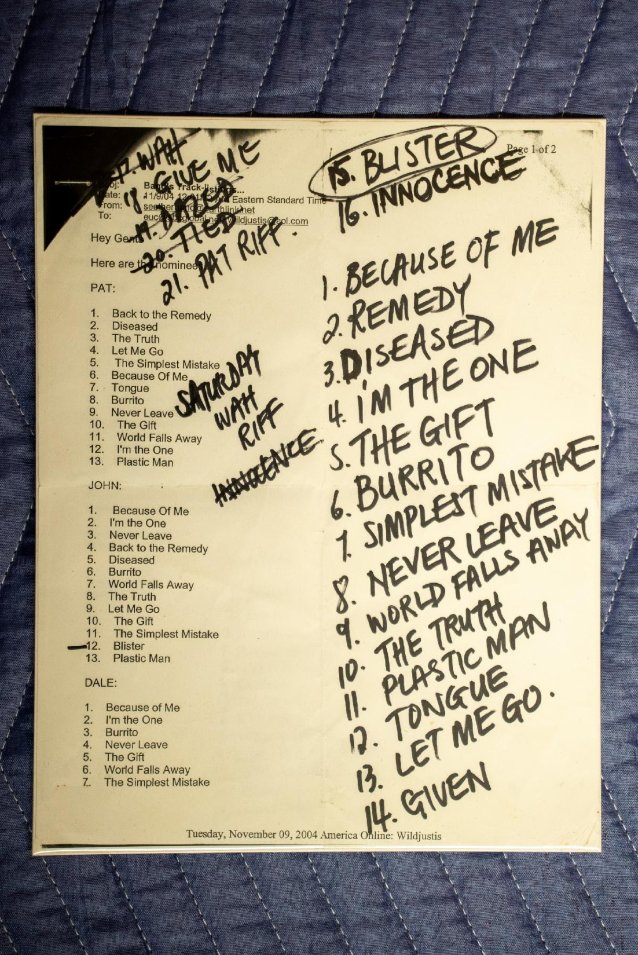 WAH
15. BLISTER
Page 1 of 2
18. GIVE ME
16. INNOCENCE
Eastern Standard Time
From:
To:
20. TIED
21. PAT RIFF.
Hey
Here are
PAT:
1. Back to the Remedy
2. Diseased
3. The Truth
4. Let Me Go
5. The Simplest Mistake
6. Because Of Me
7. Tongue
8. Burrito
9. Never Leave
10. The Gift
11. World Falls Away
12. I'm the One
13. Plastic Man
SATURDAY
WAH
RIFF
INNOCENCE
JOHN:
1. Because Of Me
2. I'm the One
3. Never Leave
4. Back to the Remedy
5. Diseased
6. Burrito
7. World Falls Away
8. The Truth
9. Let Me Go
10. The Gift
11. The Simplest Mistake
12. Blister
13. Plastic Man
DALE:
1. Because of Me
2. I'm the One
3. Burrito
4. Never Leave
5. The Gift
6. World Falls Away
7. The Simplest Mistake
1. BECAUSE OF ME
2. REMEDY
3. DISEASED
4. I'M THE ONE
5. THE GIFT
6. BURRITO
7. SIMPLEST MISTAKE
8. NEVER LEAVE
9. WORLD FALLS AWAY
10. THE TRUTH
11. PLASTIC MAN
12. TONGUE
13. LET ME GO.
14. GIVEN
Tuesday, November 09, 2004 America Online: Wildjustis